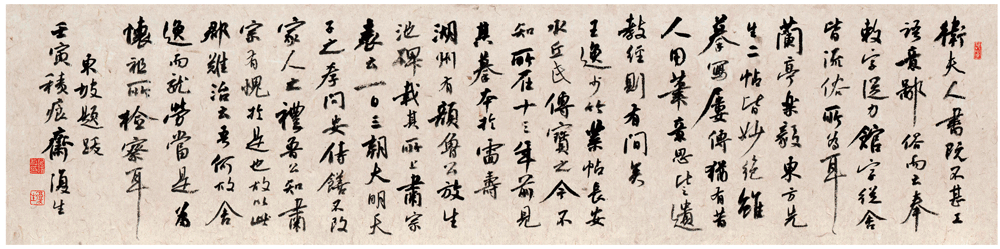 衛夫人書既不甚工
語意鄙俗而云奉
敕字從力館字從舍
皆流俗所為耳
蘭亭樂毅東方先
生三帖皆妙絕雖
摹寫屢傳猶有昔
人用筆意思比之遺
教經則有間矣
王逸少竹葉帖長安
水丘氏傳寶之今不
知所在十三年前見
其摹本於雷壽
湖州有顏魯公放生
池碑載其所上肅宗
表云一日三朝大明天
子之孝問安侍膳不改
家人之禮魯公知肅
宗有愧於是也故以此
郡難治云吾何故舍
逸而就勞當是為
懷祖所檢察耳
東坡題跋
壬寅積痕齋生